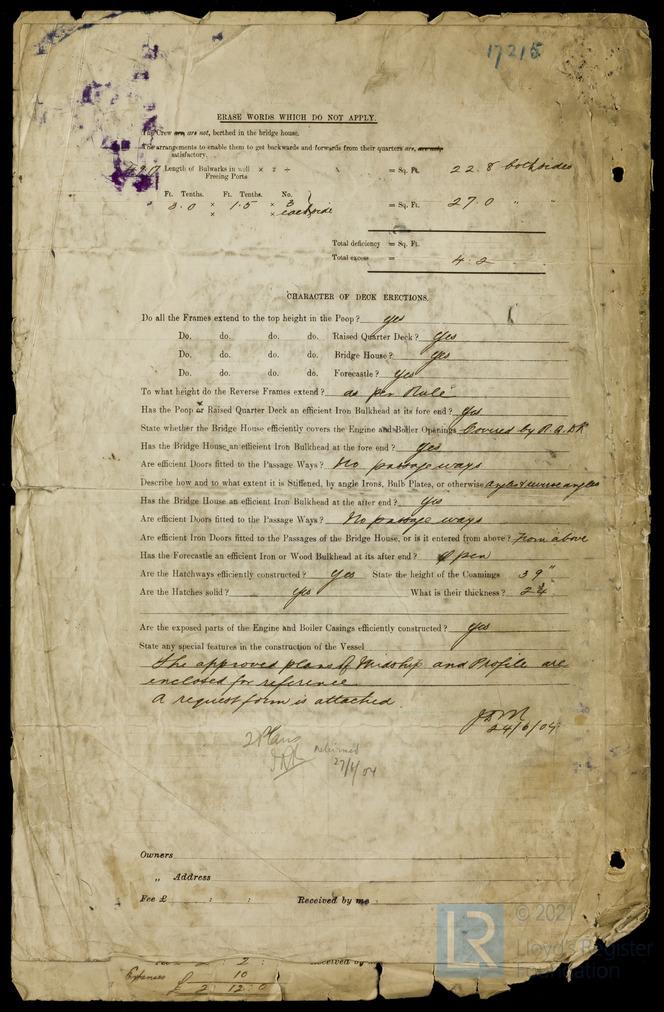 17215
ERASE WORDS WHICH DO NOT APPLY.
The Crew are, are not, berthed in the bridge house.
The arrangements to enable them to get backwards and forwards from their quarters are, are not,
satisfactory.
Length of Bulwarks in well × 2 ÷ = Sq. Ft. 22.8 both sides
Freeing Ports
Ft. Tenths. Ft. Tenths. No.
" 3.0 × 1.5 × 3 = Sq. Ft. 27.0 " "
× × each side
Total deficiency = Sq. Ft.
Total excess = 4.2
CHARACTER OF DECK ERECTIONS.
Do all the Frames extend to the top height in the Poop? yes
Do. do. do. do. Raised Quarter Deck? Yes
Do. do. do. do. Bridge House? Yes
Do. do. do. do. Forecastle? Yes
To what height do the Reverse Frames extend? as per Rule
Has the Poop or Raised Quarter Deck an efficient Iron Bulkhead at its fore end? Yes
State whether the Bridge House efficiently covers the Engine and Boiler Openings Covered by R.Q.DK
Has the Bridge House an efficient Iron Bulkhead at the fore end? Yes
Are efficient Doors fitted to the Passage Ways? No passage ways
Describe how and to what extent it is Stiffened, by angle Irons, Bulb Plates, or otherwise angles
Has the Bridge House an efficient Iron Bulkhead at the after end? Yes
Are efficient Doors fitted to the Passage Ways? No passage ways
Are efficient Iron Doors fitted to the Passages of the Bridge House, or is it entered from above? From above
Has the Forecastle an efficient Iron or Wood Bulkhead at its after end? Open
Are the Hatchways efficiently constructed? Yes State the height of the Coamings 39"
Are the Hatches solid? Yes What is their thickness?
Are the exposed parts of the Engine and Boiler Casings efficiently constructed? Yes
State any special features in the construction of the Vessel
The approved plans of Midship and Profile are
enclosed for reference
A request form is attached.
24/6/04
2 Plans
returned
27/6/04
Owners
„ Address
Fee £ : : Received by me
2 : 2 : Received by
Expenses 10
£ 2 : 12 : 0
LR
© 2021
Lloyd's Register
Foundation